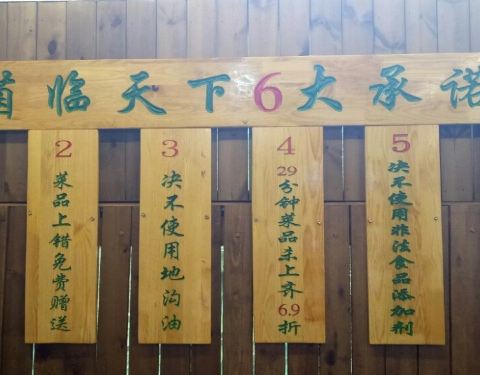 临天下6大承诺
2 菜品上错免费赠送
3 决不使用地沟油
4 29分钟菜品未上齐6.9折
5 决不使用非法食品添加剂